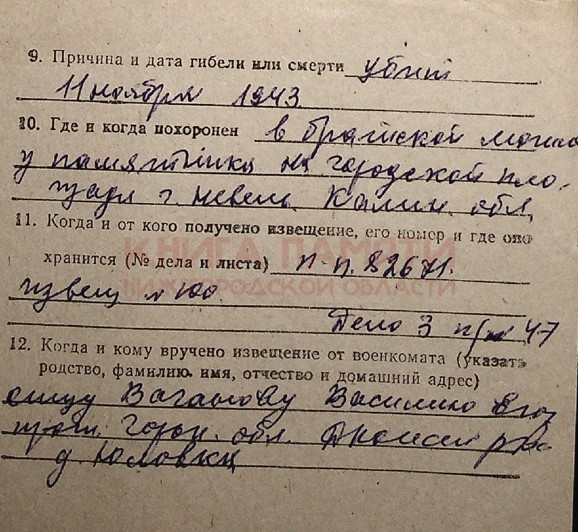 9. Причина и дата гибели или смерти убит
11 ноября 1943
10. Где и когда похоронен в братской могиле
у памятника на городской пло-
щади г. Невель Калин. обл.
11. Когда и от кого получено извещение, его номер и где оно
КНИГА ПАМЯТИ
хранится (№ дела и листа) п-п. 82671.
НИЖЕГОРОДСКОЙ ОБЛАСТИ
извещ
Дело 3 47
12. Когда и кому вручено извещение от военкомата (указать
родство, фамилию, имя, отчество и домашний адрес)
отцу Ваганову Василию
Горьк. обл.
д. Юловка